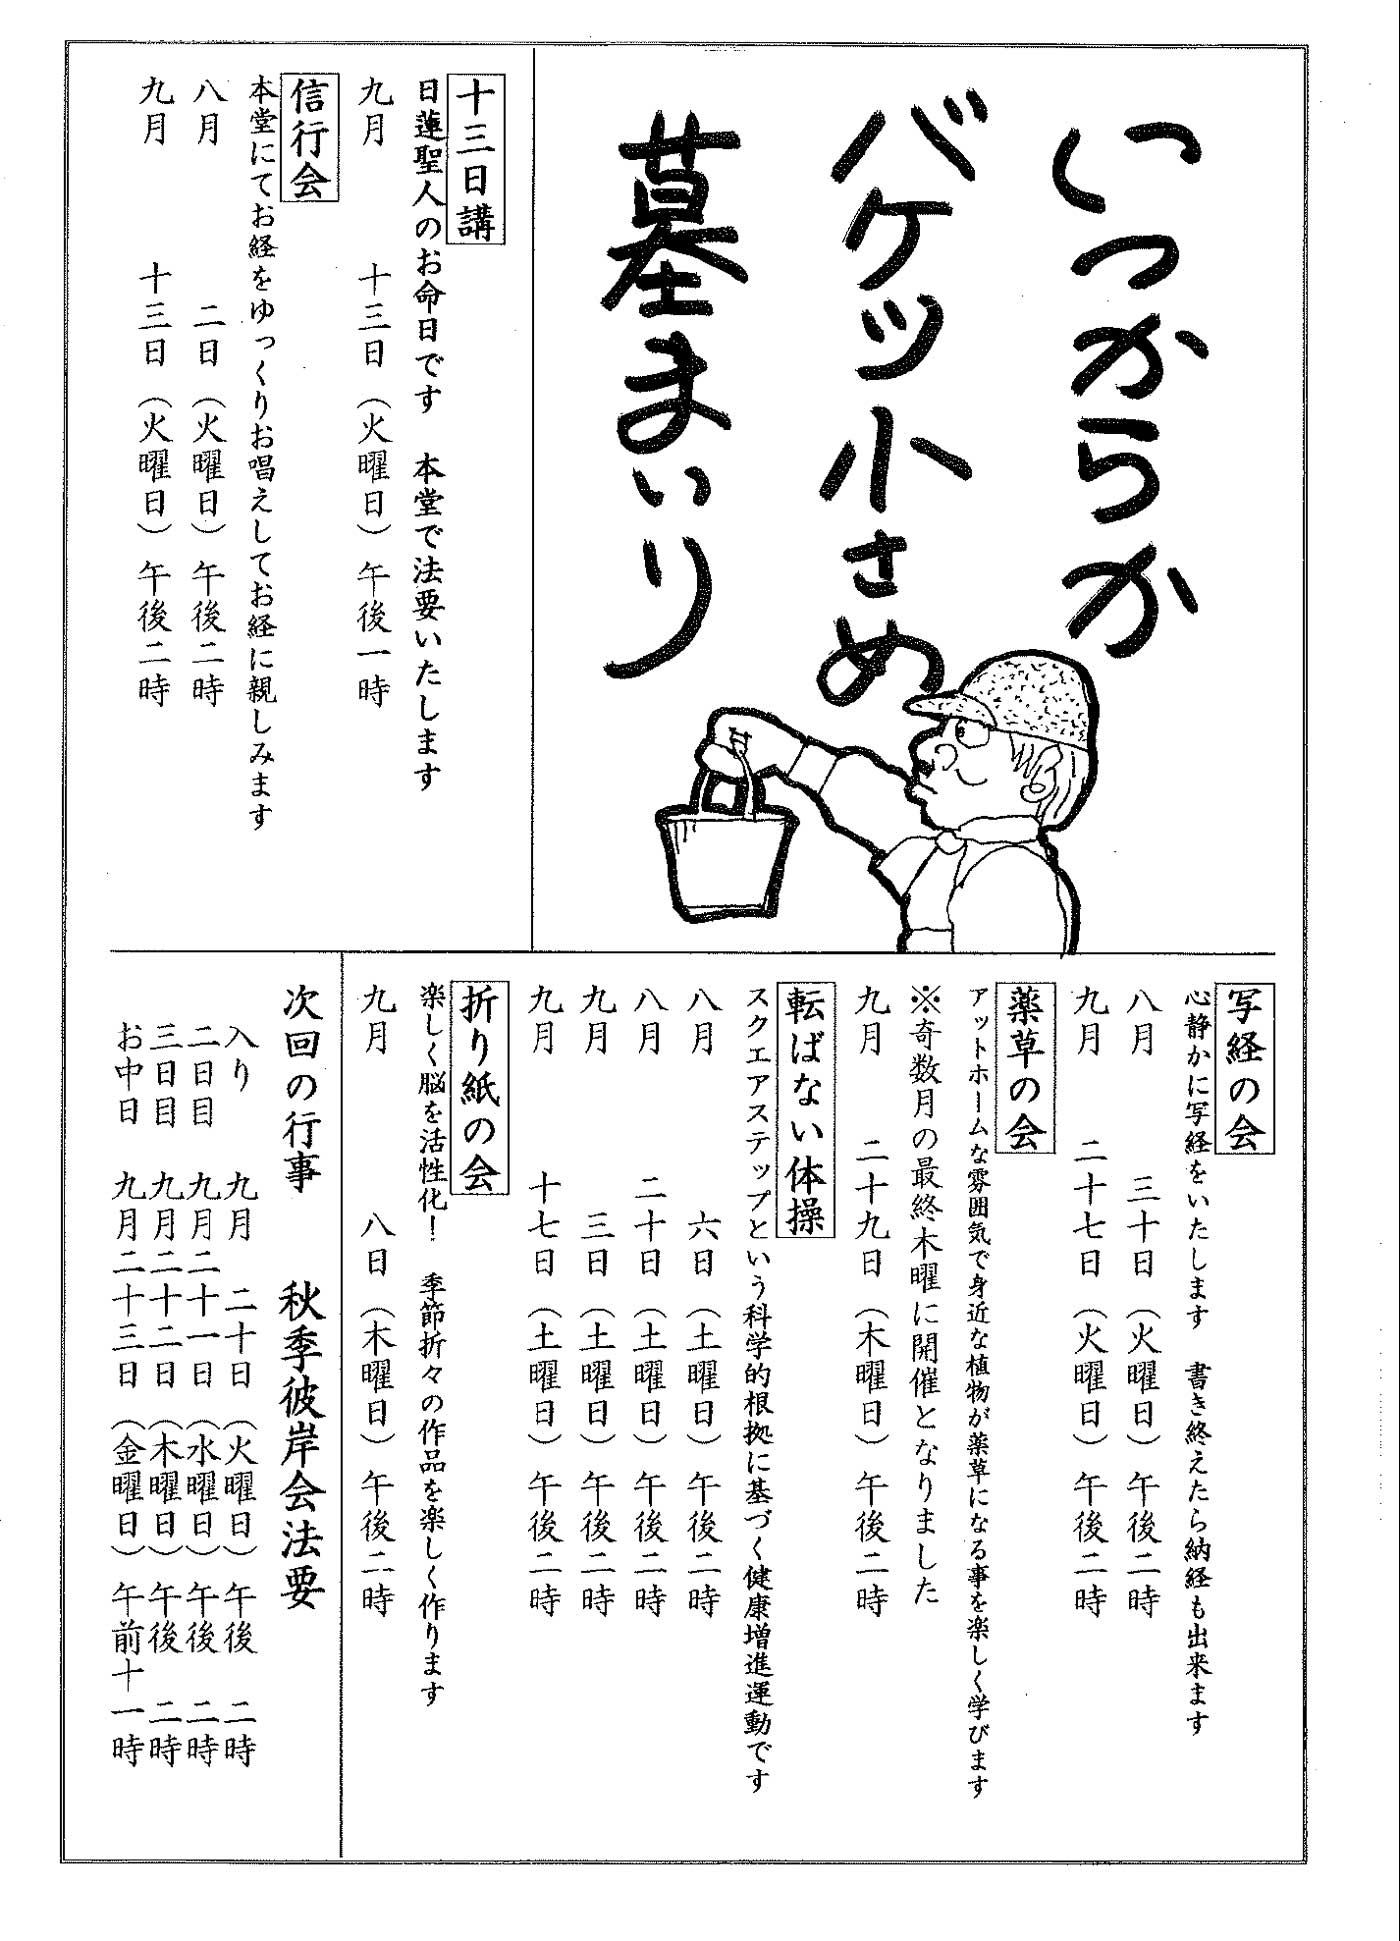 いつからか
バケツ小さめ
墓まいり
十三日講
日蓮聖人のお命日です　本堂で法要いたします
九月　十三日（火曜日）午後一時
信行会
本堂にてお経をゆっくりお唱えしてお経に親しみます
八月　二日（火曜日）午後二時
九月　十三日（火曜日）午後二時
写経の会
心静かに写経をいたします　書き終えたら納経も出来ます
八月　三十日（火曜日）午後二時
九月　二十七日（火曜日）午後二時
薬草の会
アットホームな雰囲気で身近な植物が薬草になる事を楽しく学びます
※奇数月の最終木曜に開催となりました
九月　二十九日（木曜日）午後二時
転ばない体操
スクエアステップという科学的根拠に基づく健康増進運動です
八月　六日（土曜日）午後二時
八月　二十日（土曜日）午後二時
九月　三日（土曜日）午後二時
九月　十七日（土曜日）午後二時
折り紙の会
楽しく脳を活性化！　季節折々の作品を楽しく作ります
九月　八日（木曜日）午後二時
次回の行事　秋季彼岸会法要
入り　九月　二十日（火曜日）午後　二時
二日目　九月二十一日（水曜日）午後　二時
三日目　九月二十二日（木曜日）午後　二時
お中日　九月二十三日（金曜日）午前十一時